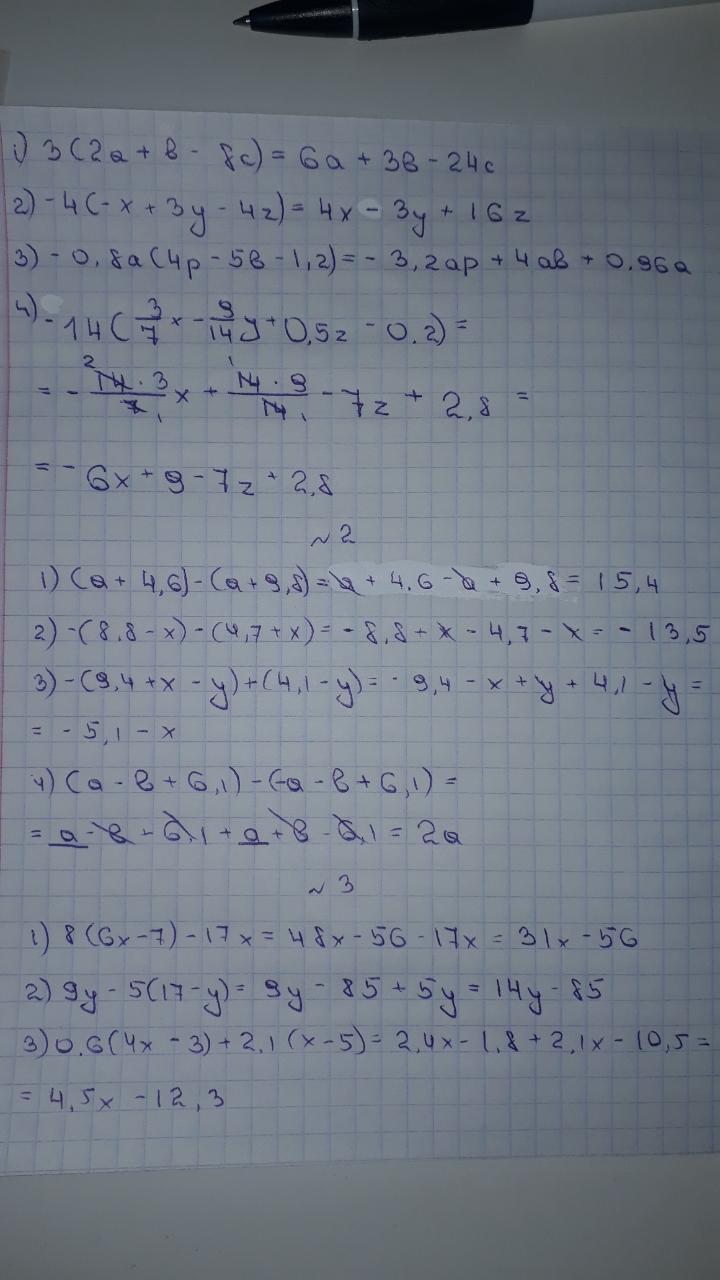 1) 3(2a + b - 8c) = 6a + 3b - 24c
2) -4(-x + 3y - 4z) = 4x - 3y + 16z
3) -0,8a(4p - 5b - 1,2) = -3,2ap + 4ab + 0,96a
4) -14(3/7 x - 9/14 y + 0,5z - 0,2) =
= - 14 · 3 / 7 x + 14 · 9 / 14 - 7z + 2,8 =
= - 6x + 9 - 7z + 2,8
~ 2
1) (a + 4,6) - (a + 9,8) = a + 4,6 - a + 9,8 = 15,4
2) -(8,8 - x) - (4,7 + x) = -8,8 + x - 4,7 - x = -13,5
3) -(9,4 + x - y) + (4,1 - y) = -9,4 - x + y + 4,1 - y =
= -5,1 - x
4) (a - b + 6,1) - (-a - b + 6,1) =
= a - b + 6,1 + a + b - 6,1 = 2a
~ 3
1) 8(6x - 7) - 17x = 48x - 56 - 17x = 31x - 56
2) 9y - 5(17 - y) = 9y - 85 + 5y = 14y - 85
3) 0,6(4x - 3) + 2,1(x - 5) = 2,4x - 1,8 + 2,1x - 10,5 =
= 4,5x - 12,3